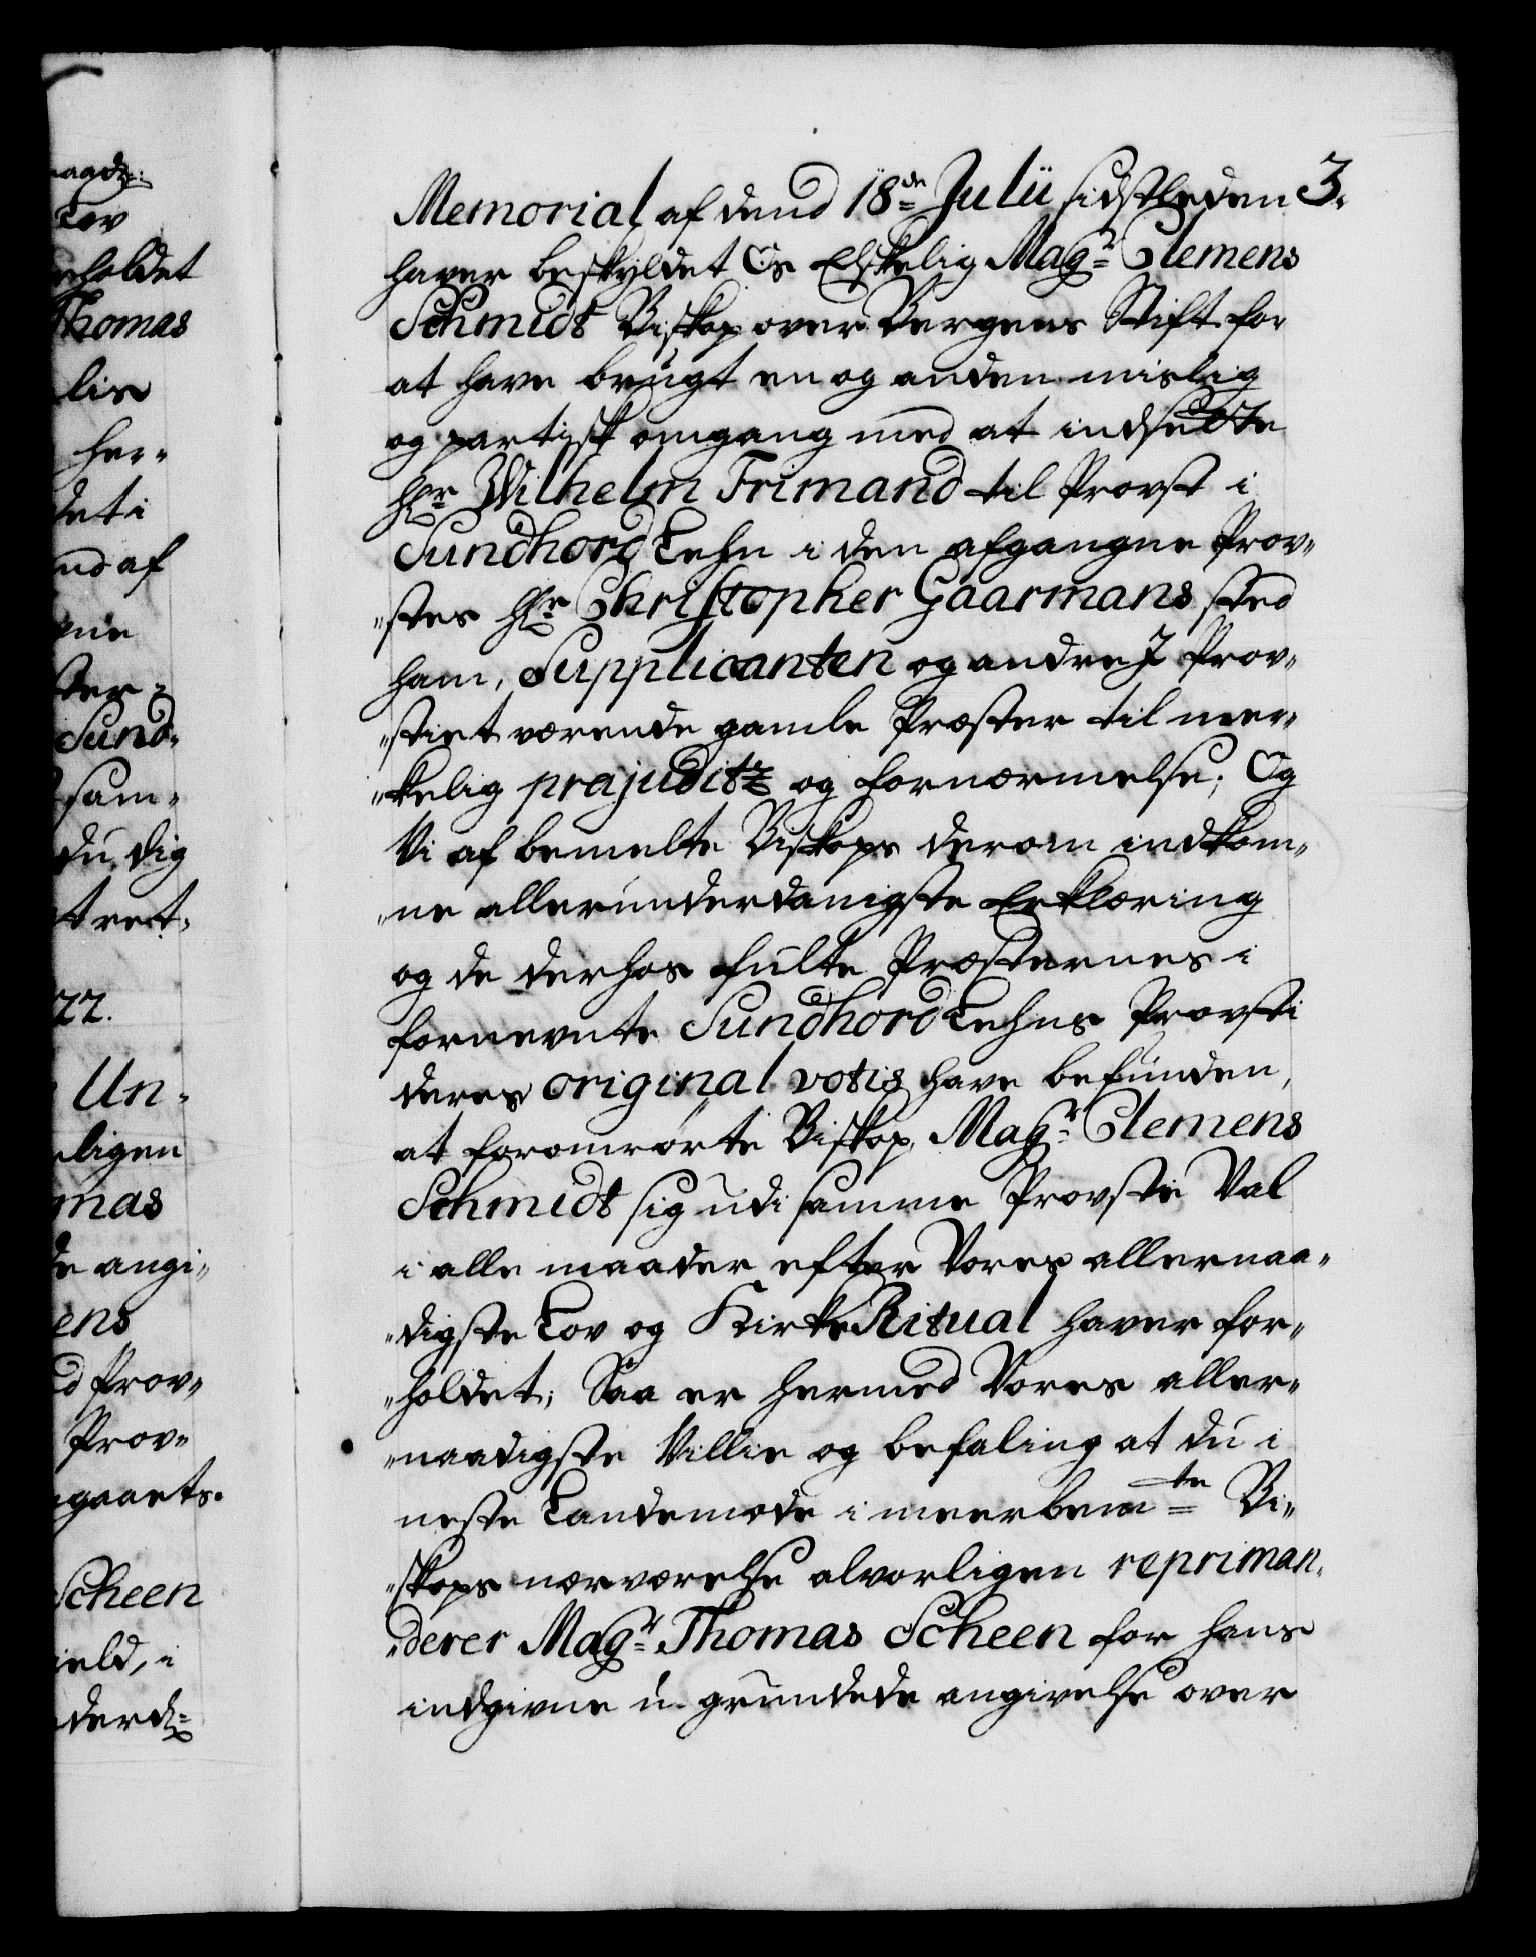 3.
Memorial af dend 18de Julii sidstleden
haver beskyldet Os Elskelig Magr Clemens
Schmidt Biskop over Bergens Stift for
at have brugt en og anden mislig
og partisk omgang med at indsætte
Hr Wilhelm Frimand til Provst i
Sundhord Lehn i den afgangne Prov-
"stes Hr Christopher Gaarmans sted
ham, Supplicanten og andre J Prov-
"stiet værende gamle Præster til mer-
"kelig præjuditz og fornærmelse; Og
Vi af bemelte Biskops derom indkom-
"ne allerunderdanigste Erklæring
og de derhos fulte Præsternes i
fornevnte Sundhord Lehns Provsti
deres original votis have befunden,
at foromrørte Biskop Magr Clemens
Schmidt sig udi samme Provste Val
i alle maader efter Vores allernaa-
"digste Lov og Kirke Ritual haver for-
"holdet; Saa er hermed Vores aller-
"naadigste Villie og befaling at du i
neste Landemode i meerbemte Bi-
"skops nærværelse alvorligen repriman-
"derer Magr Thomas Scheen for hans
indgivne u-grundede angivelse over
naads:
Lov
rholdet
Thomas
lis
her-
det i
nd af
ene
ster
Sund-
sam-
du dig
t ret-
22.
Un-
eligen
mas
de angi-
ens
d Prov-
Prov-
gaarts-
Scheen
ield, i